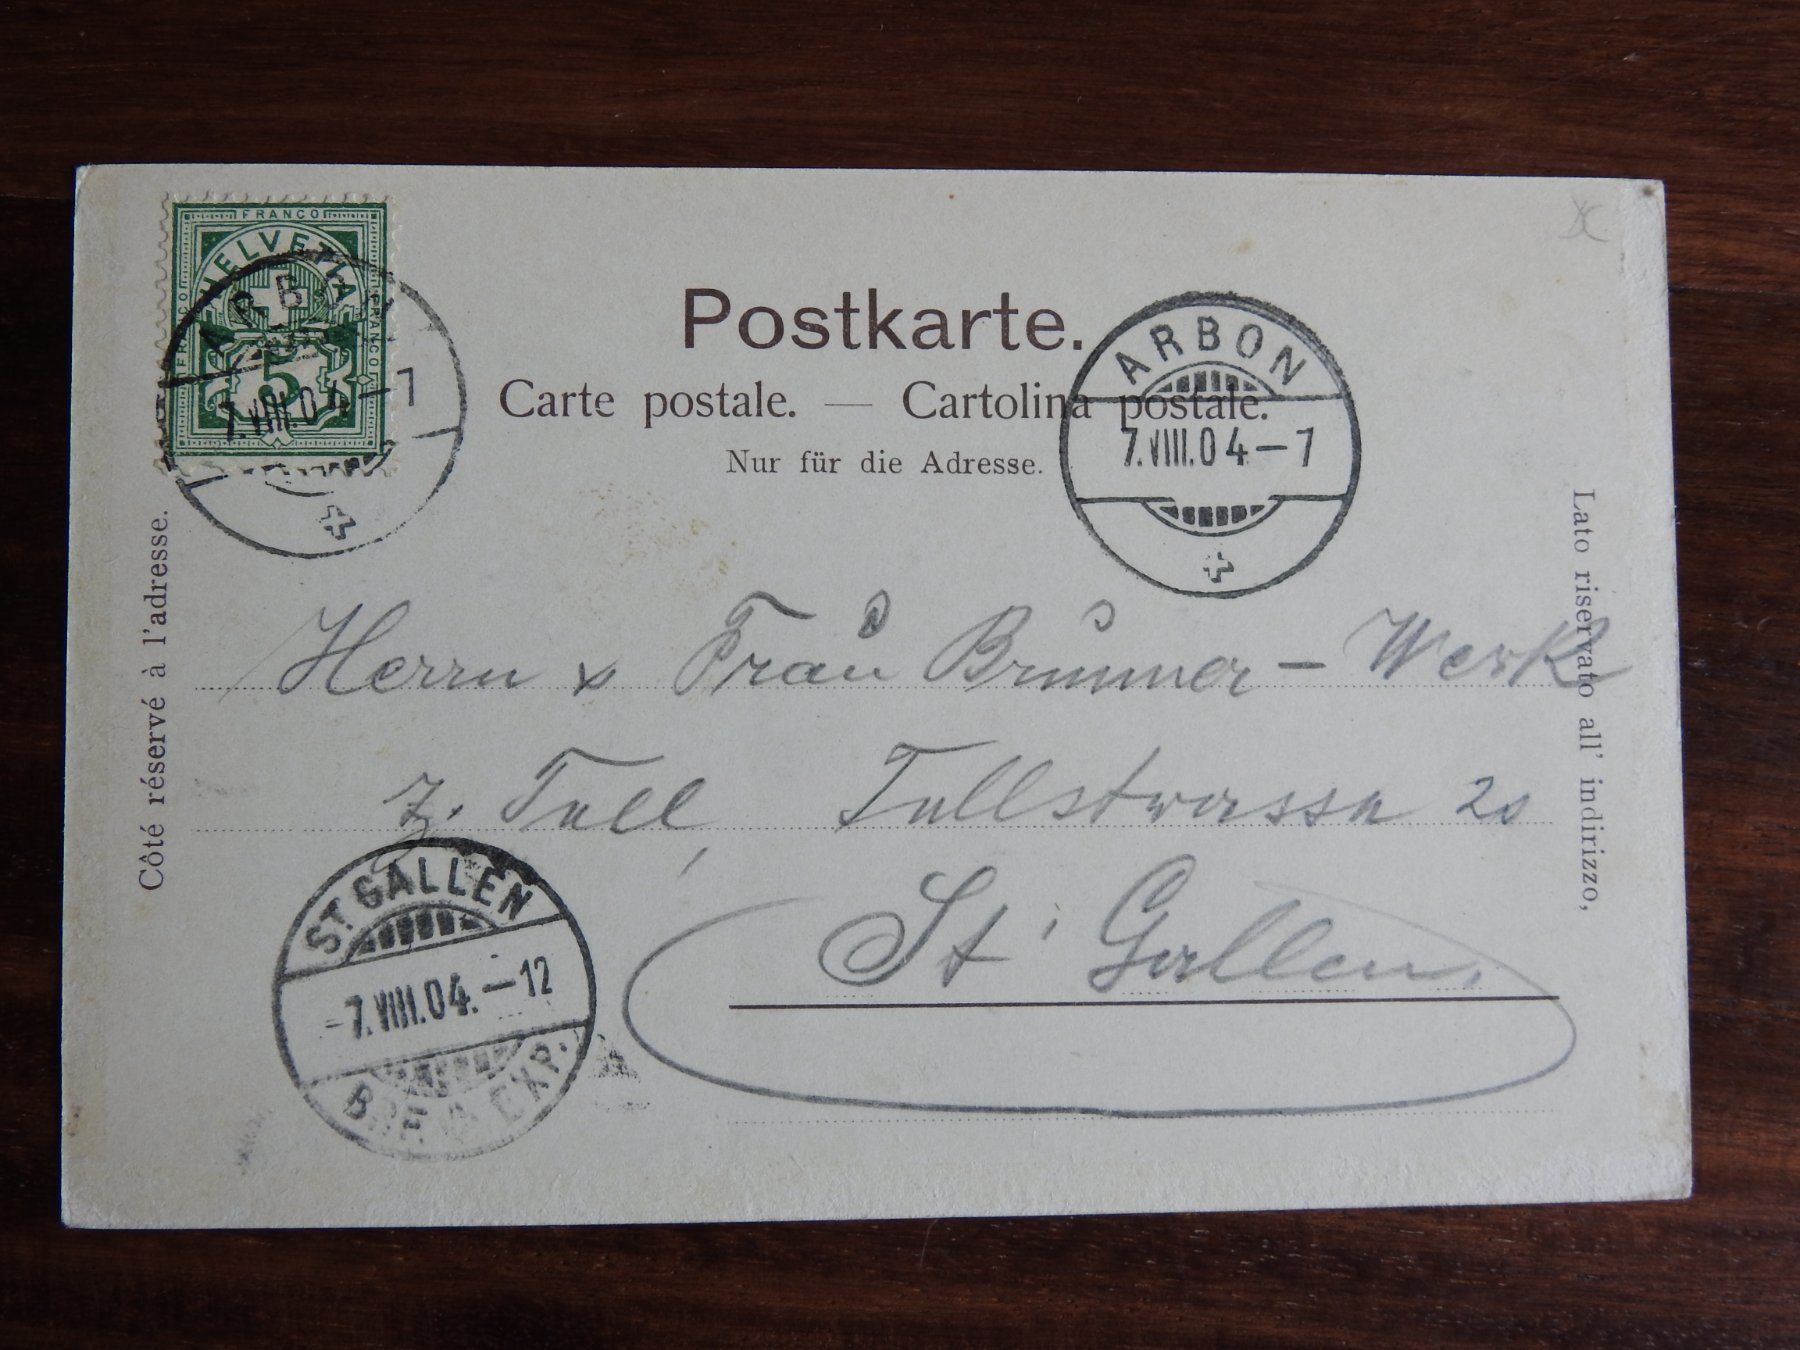 FRANCO
HELVETIA
FRANCO
FRANCO
5
ARBON
7.VIII.04-7
Postkarte.
Carte postale. — Cartolina postale.
Nur für die Adresse.
ARBON
7.VIII.04-7
Côté réservé à l'adresse.
Lato riservato all' indirizzo,
Herrn & Frau Brunner - Werk
z. Tell, Tellstrasse 20
St. Gallen.
ST. GALLEN
-7.VIII.04.-12
BRIEF EXP.